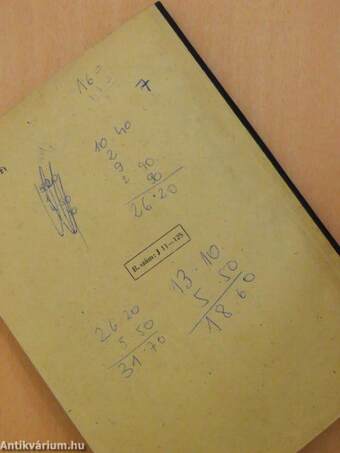 160
7
10 40
2
9
2 90
90
26.20
R. szám: J 11—125
26.20
5 50
31.70
13.10
5.50
18.60
Antikvárium.hu